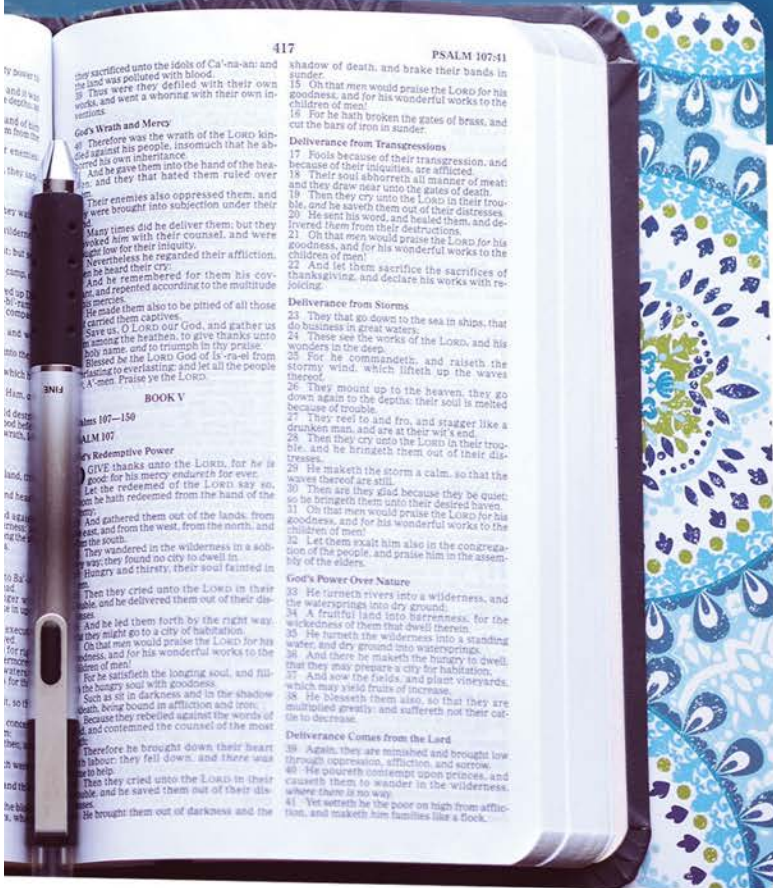 power to
and it was
depths, as
and of
m from the
enemies
they
camp
Ham,
wrath,
land,
417
PSALM 107:41
they sacrificed unto the idols of Ca'-na-an: and
the land was polluted with blood.
39 Thus were they defiled with their own
works, and went a whoring with their own in-
ventions.
God's Wrath and Mercy
40 Therefore was the wrath of the LORD kin-
dled against his people, insomuch that he ab-
horred his own inheritance.
And he gave them into the hand of the hea-
and they that hated them ruled over
Their enemies also oppressed them, and
were brought into subjection under their
Many times did he deliver them; but they
him with their counsel, and were
low for their iniquity.
Nevertheless he regarded their affliction,
he heard their cry:
And he remembered for them his cov-
and repented according to the multitude
mercies.
He made them also to be pitied of all those
carried them captives.
Save us, O LORD our God, and gather us
among the heathen, to give thanks unto
holy name, and to triumph in thy praise.
Blessed be the LORD God of Is'-ra-el from
to everlasting: and let all the people
A'-men. Praise ye the LORD.
BOOK V
107—150
107
Redemptive Power
GIVE thanks unto the LORD, for he is
good: for his mercy endureth for ever.
Let the redeemed of the LORD say so,
he hath redeemed from the hand of the
And gathered them out of the lands, from
east, and from the west, from the north, and
the south.
They wandered in the wilderness in a soli-
way; they found no city to dwell in.
Hungry and thirsty, their soul fainted in
Then they cried unto the LORD in their
and he delivered them out of their dis-
And he led them forth by the right way,
they might go to a city of habitation.
Oh that men would praise the LORD for his
and for his wonderful works to the
of men!
For he satisfieth the longing soul, and fill-
the hungry soul with goodness.
Such as sit in darkness and in the shadow
being bound in affliction and iron;
Because they rebelled against the words of
and contemned the counsel of the most
Therefore he brought down their heart
labour; they fell down, and there was
to help.
Then they cried unto the LORD in their
and he saved them out of their dis-
He brought them out of darkness and the
shadow of death, and brake their bands in
sunder.
15 Oh that men would praise the LORD for his
goodness, and for his wonderful works to the
children of men!
16 For he hath broken the gates of brass, and
cut the bars of iron in sunder.
Deliverance from Transgressions
17 Fools because of their transgression, and
because of their iniquities, are afflicted.
18 Their soul abhorreth all manner of meat;
and they draw near unto the gates of death.
19 Then they cry unto the LORD in their trou-
ble, and he saveth them out of their distresses.
20 He sent his word, and healed them, and de-
livered them from their destructions.
21 Oh that men would praise the LORD for his
goodness, and for his wonderful works to the
children of men!
22 And let them sacrifice the sacrifices of
thanksgiving, and declare his works with re-
joicing.
Deliverance from Storms
23 They that go down to the sea in ships, that
do business in great waters;
24 These see the works of the LORD, and his
wonders in the deep.
25 For he commandeth, and raiseth the
stormy wind, which lifteth up the waves
thereof.
26 They mount up to the heaven, they go
down again to the depths: their soul is melted
because of trouble.
27 They reel to and fro, and stagger like a
drunken man, and are at their wit's end.
28 Then they cry unto the LORD in their trou-
ble, and he bringeth them out of their dis-
tresses.
29 He maketh the storm a calm, so that the
waves thereof are still.
30 Then are they glad because they be quiet;
so he bringeth them unto their desired haven.
31 Oh that men would praise the LORD for his
goodness, and for his wonderful works to the
children of men!
32 Let them exalt him also in the congrega-
tion of the people, and praise him in the assem-
bly of the elders.
God's Power Over Nature
33 He turneth rivers into a wilderness, and
the watersprings into dry ground;
34 A fruitful land into barrenness, for the
wickedness of them that dwell therein.
35 He turneth the wilderness into a standing
water, and dry ground into watersprings.
36 And there he maketh the hungry to dwell,
that they may prepare a city for habitation;
37 And sow the fields, and plant vineyards,
which may yield fruits of increase.
38 He blesseth them also, so that they are
multiplied greatly; and suffereth not their cat-
tle to decrease.
Deliverance Comes from the Lord
39 Again, they are minished and brought low
through oppression, affliction, and sorrow.
40 He poureth contempt upon princes, and
causeth them to wander in the wilderness,
where there is no way.
41 Yet setteth he the poor on high from afflic-
tion, and maketh him families like a flock.
FINE